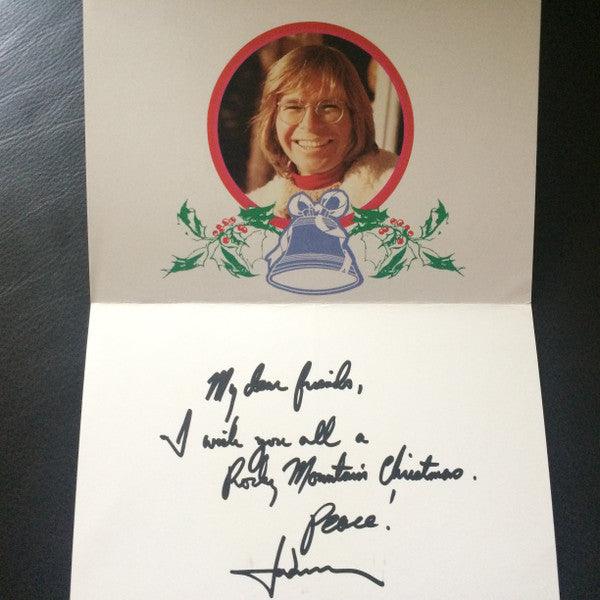 My dear friends,
I wish you all a
Rocky Mountain Christmas.
Peace!